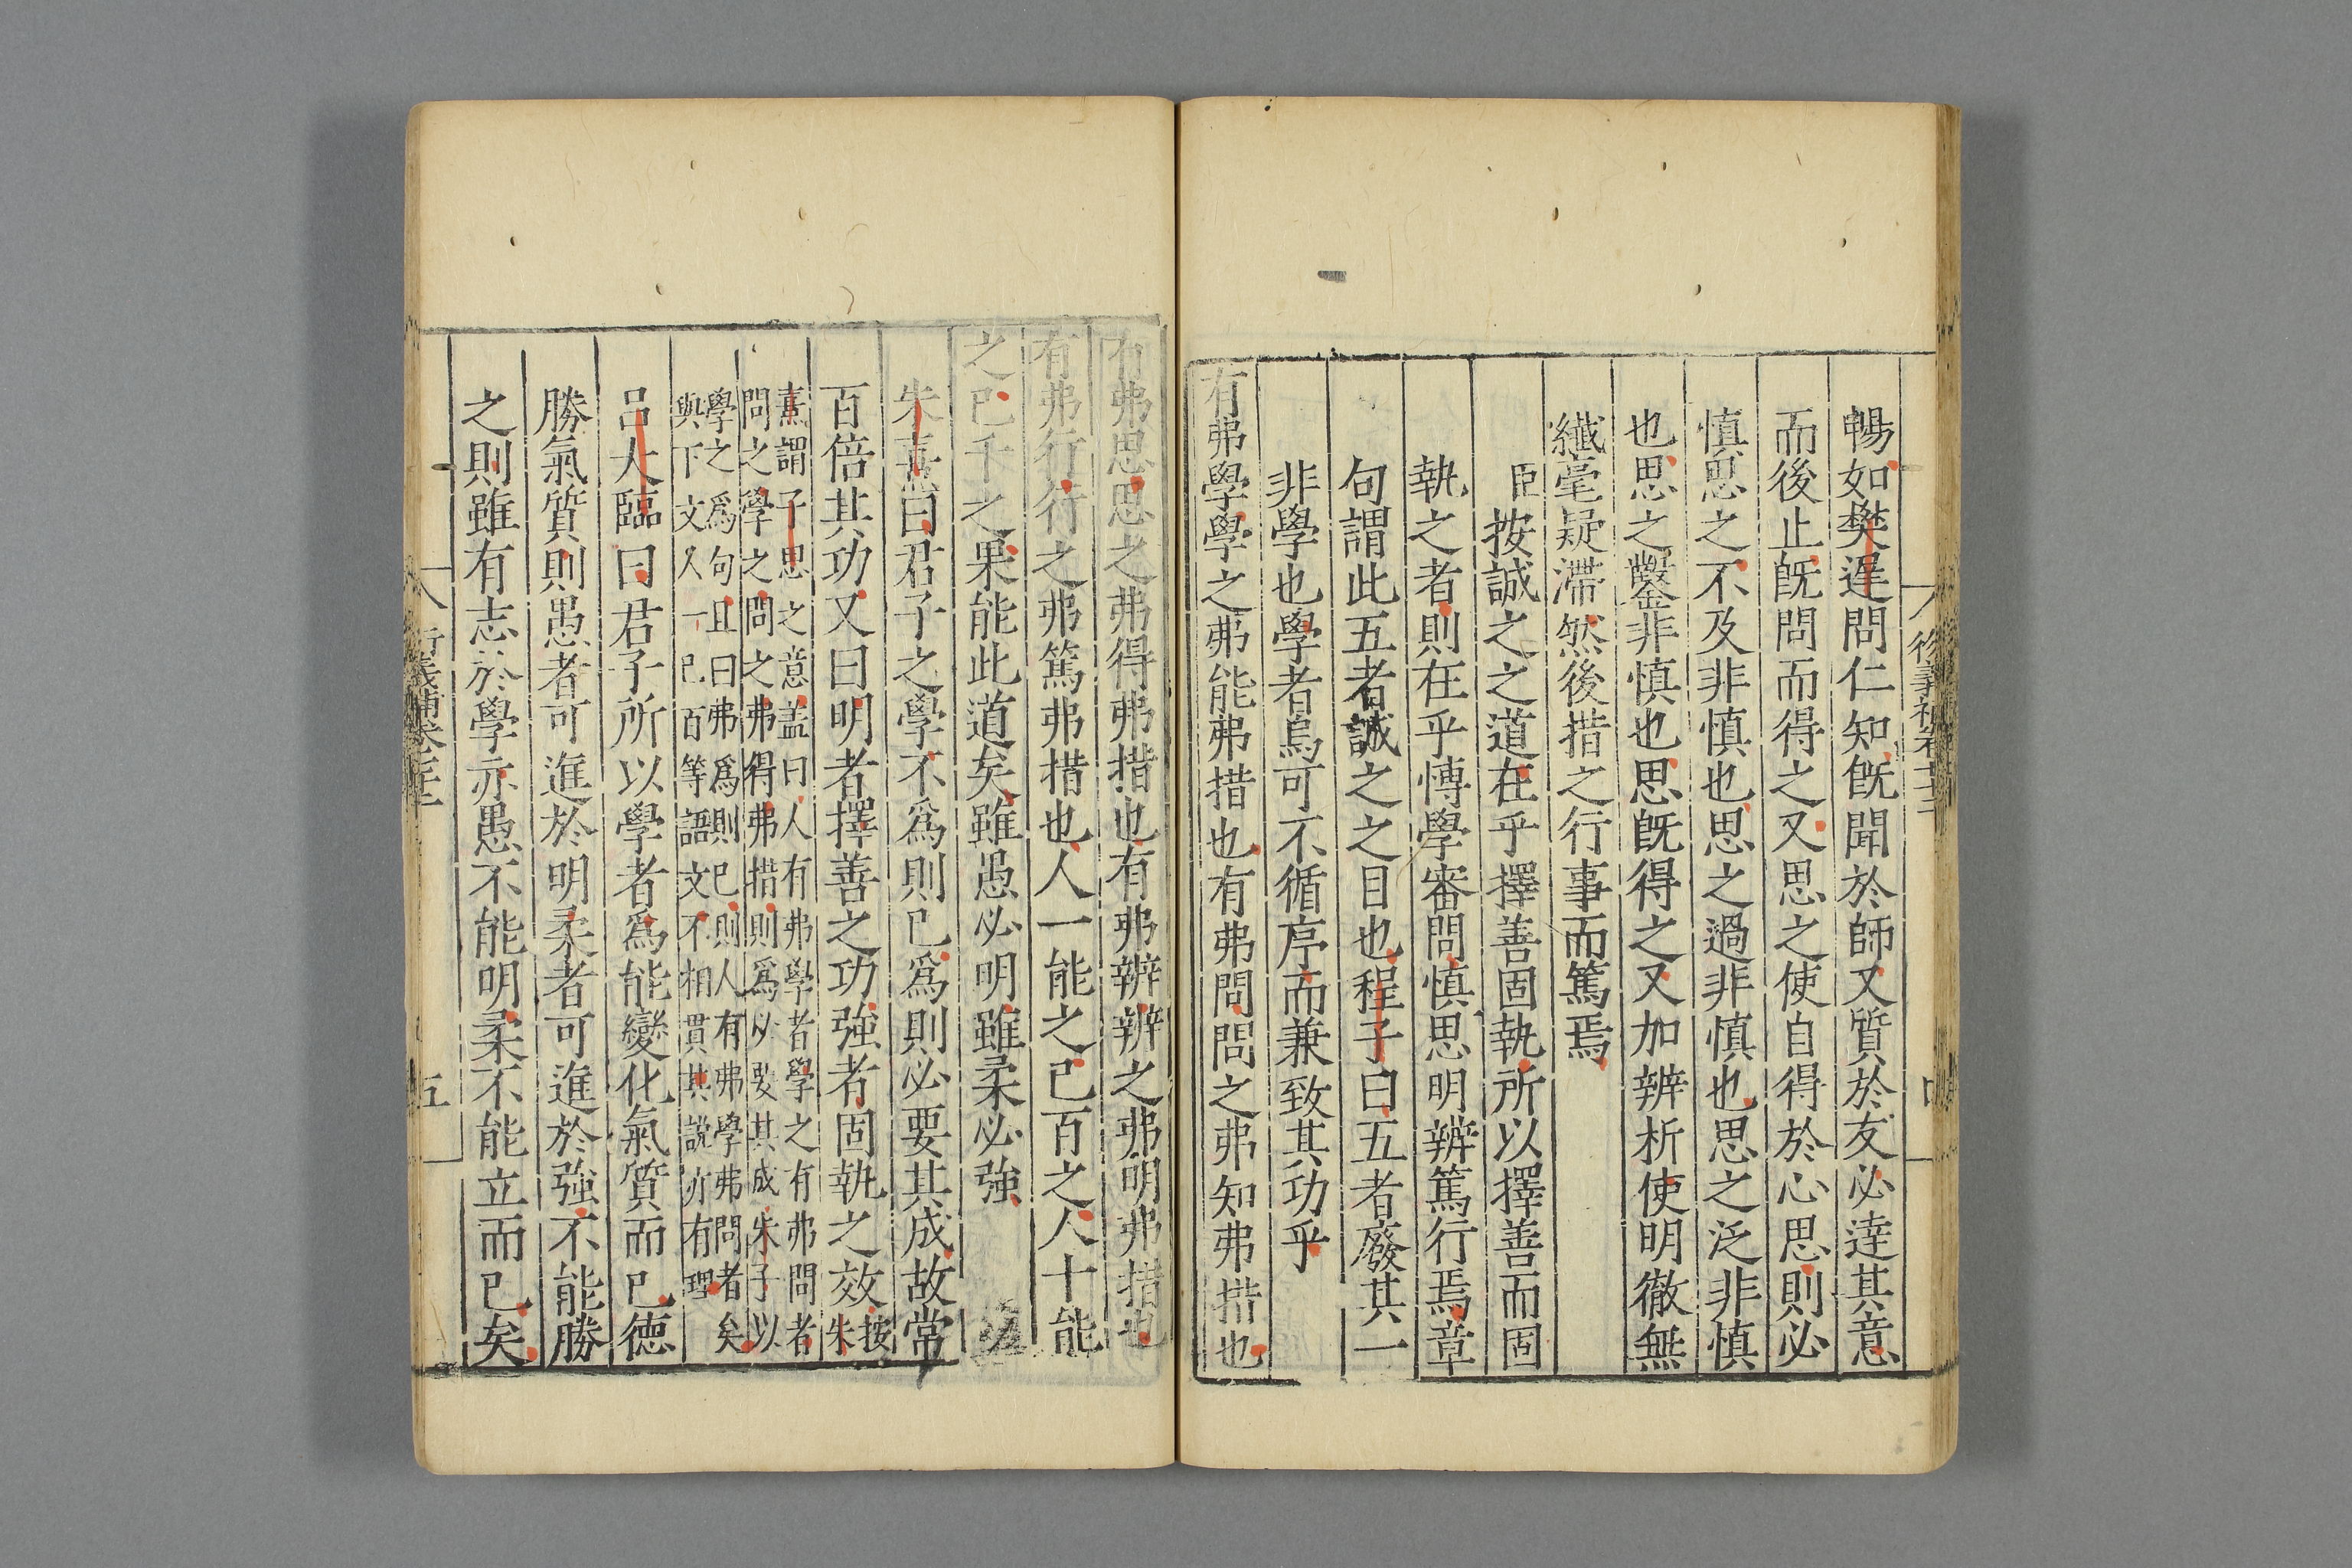 暢如樊遲問仁知旣聞於師又質於友必逹其意
而後止旣問而得之又思之使自得於心思則必
慎思之不及非慎也思之過非慎也思之泛非慎
也思之鑿非慎也思旣得之又加辨析使明徹無
纖毫疑滯然後措之行事而篤焉
臣按誠之之道在乎擇善固執所以擇善而固
執之者則在乎博學審問慎思明辨篤行焉章
句謂此五者誠之之目也程子曰五者廢其一
非學也學者烏可不循序而兼致其功乎
有弗學學之弗能弗措也有弗問問之弗知弗措也
有弗思思之弗得弗措也有弗辨辨之弗明弗措也
有弗行行之弗篤弗措也人一能之己百之人十能
之己千之果能此道矣雖愚必明雖柔必強
朱熹曰君子之學不爲則已爲則必要其成故常
百倍其功又曰明者擇善之功強者固執之效按朱
熹謂子思之意盖曰人有弗學者學之有弗問者
問之學之問之弗得弗措則爲必要其成朱子以
學之爲句且曰弗爲則已則人有弗學弗問者矣
與下文人一己百等語文不相貫其說亦有理
呂大臨曰君子所以學者爲能變化氣質而已德
勝氣質則愚者可進於明柔者可進於強不能勝
之則雖有志於學亦愚不能明柔不能立而已矣
五